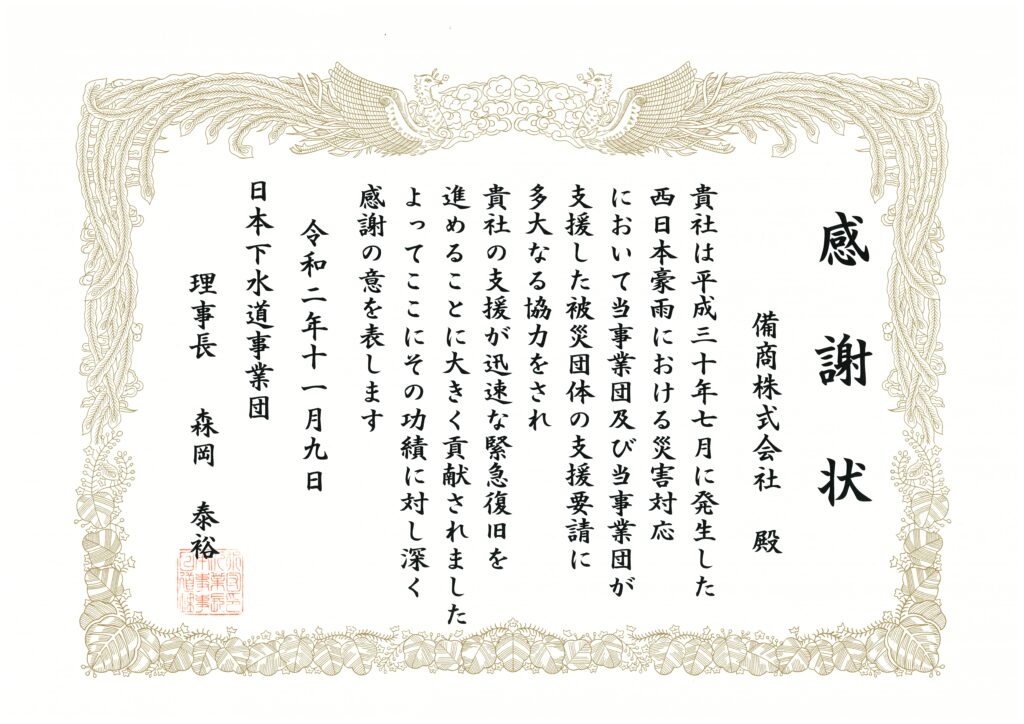 感謝状
備商株式会社 殿
貴社は平成三十年七月に発生した
西日本豪雨における災害対応
において当事業団及び当事業団が
支援した被災団体の支援要請に
多大なる協力をされ
貴社の支援が迅速な緊急復旧を
進めることに大きく貢献されました
よってここにその功績に対し深く
感謝の意を表します
令和二年十一月九日
日本下水道事業団
理事長 森岡 泰裕